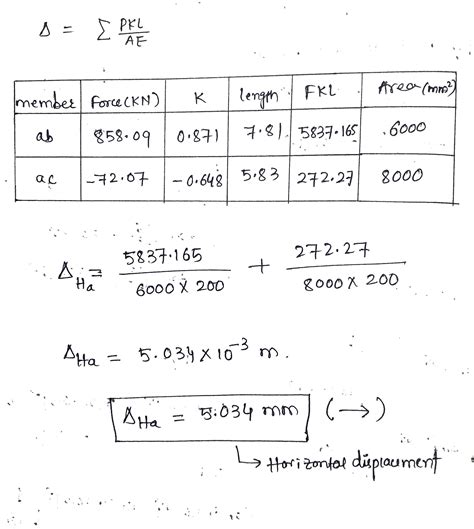 Δ = Σ PKL/AE
member Force(KN) K length FKL Area(mm²)
ab 858.09 0.871 7.81 5837.165 6000
ac -72.07 -0.648 5.83 272.27 8000
ΔHa = 5837.165/6000 × 200 + 272.27/8000 × 200
ΔHa = 5.034 × 10⁻³ m.
ΔHa = 5.034 mm (→)
↳ Horizontal displacment